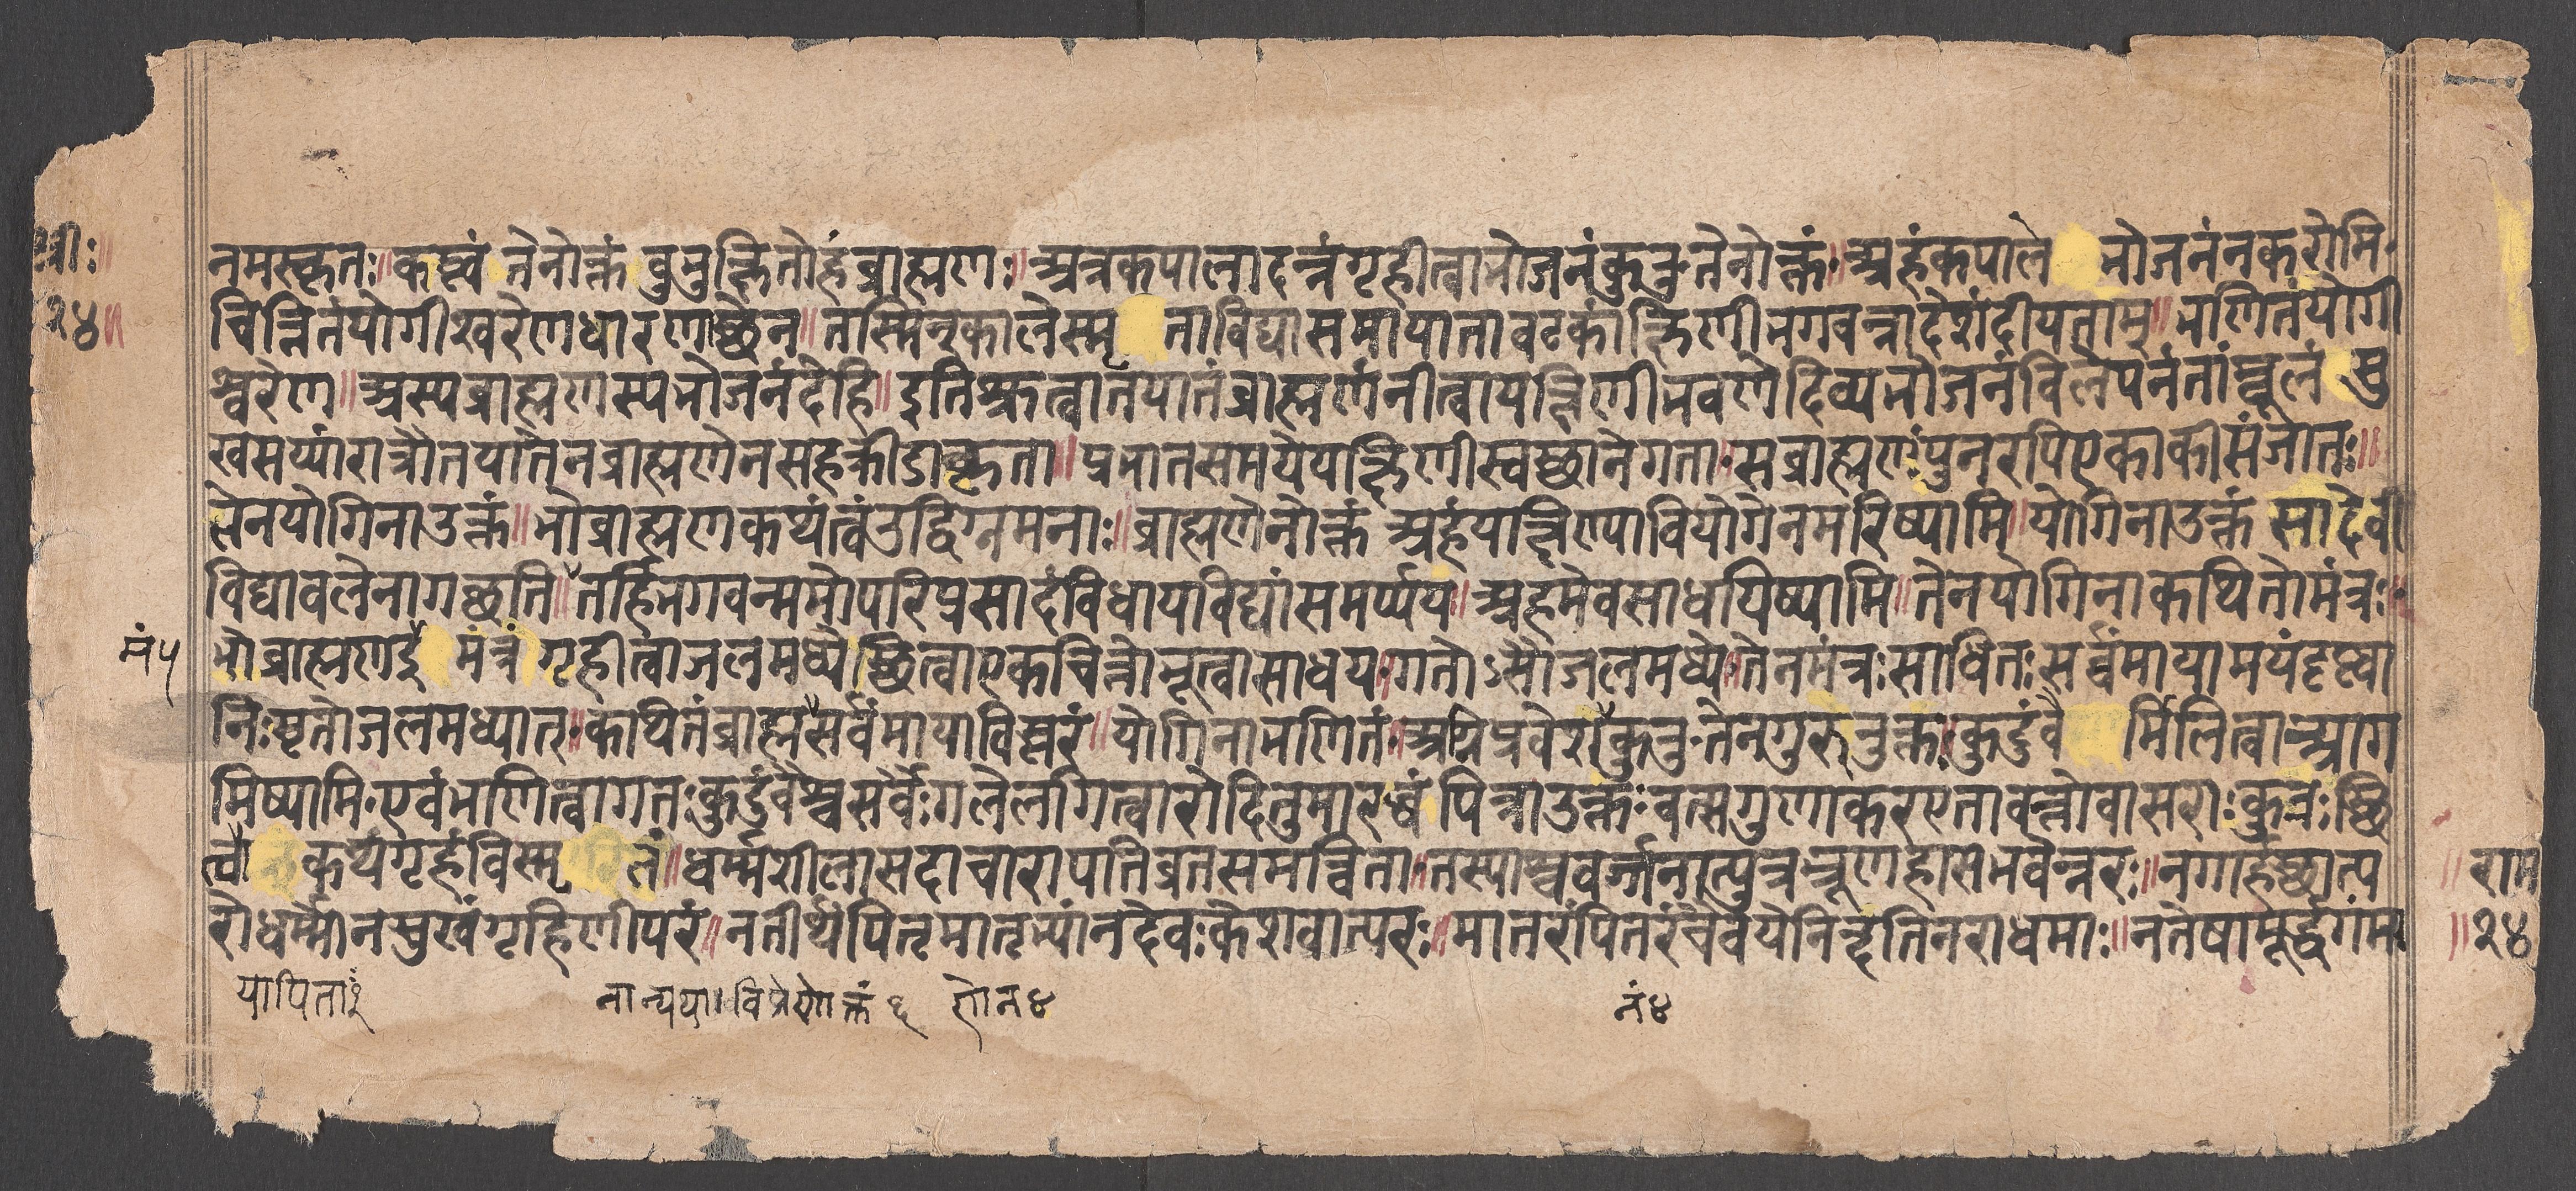 श्रीः॥
१४॥
नमस्कृतः॥कस्त्वं तेनोक्तं बुभुक्षितोहंब्राह्मणः॥अत्रकपालादन्नंगृहीत्वाभोजनंकुरुतेनोक्तं॥अहंकपाले भोजनंनकरोमि
चिन्तितंयोगीश्वरेणधारणाच्छेन॥तस्मिन्कालेस्मृ ताविद्यासमायातावटकांक्षिणीभगवन्नादेशंदीयताम्॥भणितंयोगी
श्वरेण॥अस्यब्राह्मणस्यभोजनंदेहि॥इतिश्रुत्वातयातंब्राह्मणंनीत्वायक्षिणीभवणेदिव्यभोजनंविलेपनंतांम्बूलं सु
खसय्यांरात्रौतयातेनब्राह्मणेनसहक्रीडाकृता॥प्रभातसमयेयक्षिणीस्वस्थानेगता॰सब्राह्मणःपुनरपिएकाकीसंजातः॥
तेनयोगिनाउक्तं॥भोब्राह्मणकथंत्वंउद्विग्नमनाः॥ब्राह्मणेनोक्तं अहंयाक्षिण्यावियोगेनमरिष्यामि॥योगिनाउक्तं सादेवी
विद्यावलेनागच्छति॥तर्हिभगवन्ममोपरिप्रसादंविधायविद्यांसमर्प्पय॥अहमेवसाधयिष्यामि॥तेनयोगिनाकथितोमंत्रः॥
मं५
भोब्राह्मणइ मंत्रं गृहीत्वाजलमध्येस्थित्वाएकचित्तोभूत्वासाधय॥गतोऽसौजलमध्ये॥तेनमंत्रःसाधितःसर्वंमायामयंदृष्ट्वा
निःसृतोजलमध्यात्॥कथितंब्राह्मसर्वंमायाविस्तरं॥योगिनाभणितं॥अग्निप्रवेशंकुरु॰तेनगुरुनुक्तः॥कुटुंवै र्मिलित्वाआग
मिष्यामि॰एवंभणित्वागतःकुटुंवैश्चसर्वैःगलेलगित्वारोदितुमारब्धं पित्राउक्तः॰वत्सगुणाकरएतावन्तोवासराःकुत्रःस्थि
त्वा कथंगृहंविस्मृ तं॥धर्म्मशीलासदाचारापतिव्रतसमन्विता॥तस्याश्चवर्ज्जनात्पुत्रभ्रूणहासभवेन्नरः॥नगार्हस्थात्प
रोधर्म्मोनसुखंगृहिणीपरं॥नतीर्थंपितृमातृभ्यांनदेवःकेशवात्परः॥मातरंपितरंचैवयेनिन्दंतिनराधमाः॥नतेषामूर्द्ध्वगंम
यापिताः नान्यथा।विप्रेणोक्तं ६ तोन४ नं४
॥राम
॥१४